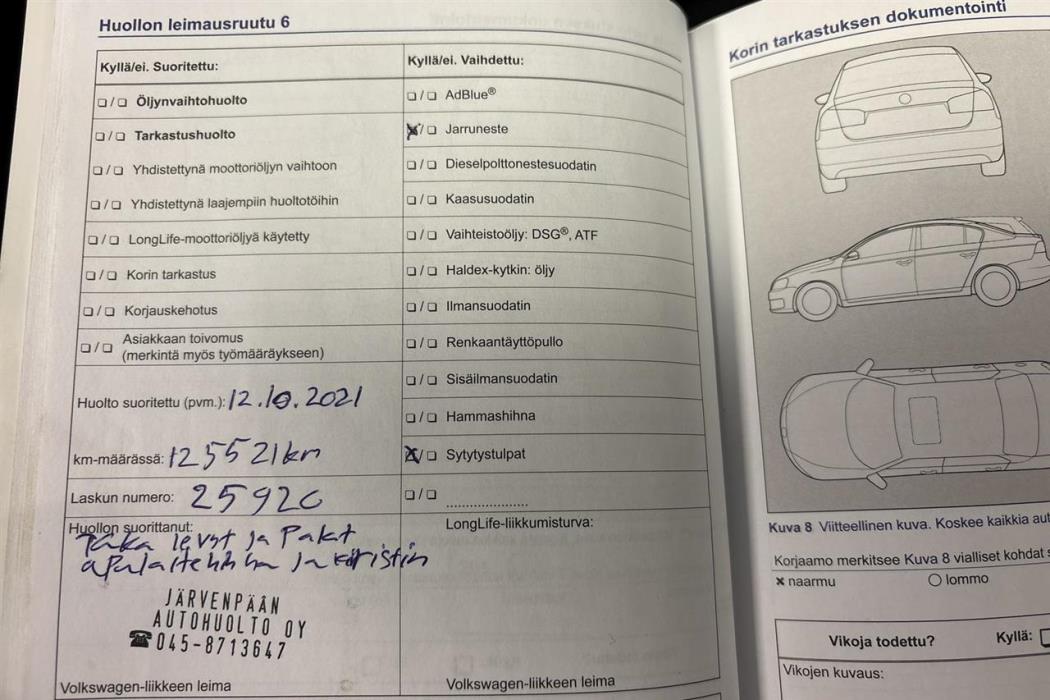 Huollon leimausruutu 6
Kyllä/ei. Suoritettu:
❏ / ❏ Öljynvaihtohuolto
❏ / ❏ Tarkastushuolto
❏ / ❏ Yhdistettynä moottoriöljyn vaihtoon
❏ / ❏ Yhdistettynä laajempiin huoltotöihin
❏ / ❏ LongLife-moottoriöljyä käytetty
❏ / ❏ Korin tarkastus
❏ / ❏ Korjauskehotus
❏ / ❏ Asiakkaan toivomus
(merkintä myös työmääräykseen)
Huolto suoritettu (pvm.): 12.10.2021
km-määrässä: 125521km
Laskun numero: 25920
Huollon suorittanut:
Taka levyt ja Palat
JÄRVENPÄÄN
AUTOHUOLTO OY
☎045-8713647
Volkswagen-liikkeen leima
Kyllä/ei. Vaihdettu:
❏ / ❏ AdBlue®
x / ❏ Jarruneste
❏ / ❏ Dieselpolttonestesuodatin
❏ / ❏ Kaasusuodatin
❏ / ❏ Vaihteistoöljy: DSG®, ATF
❏ / ❏ Haldex-kytkin: öljy
❏ / ❏ Ilmansuodatin
❏ / ❏ Renkaantäyttöpullo
❏ / ❏ Sisäilmansuodatin
❏ / ❏ Hammashihna
x / ❏ Sytytystulpat
❏ / ❏ ....................
LongLife-liikkumisturva:
Volkswagen-liikkeen leima
Korin tarkastuksen dokumentointi
Kuva 8 Viitteellinen kuva. Koskee kaikkia
Korjaamo merkitsee Kuva 8 vialliset kohdat
× naarmu ○ lommo
Vikoja todettu? Kyllä: ❏
Vikojen kuvaus: